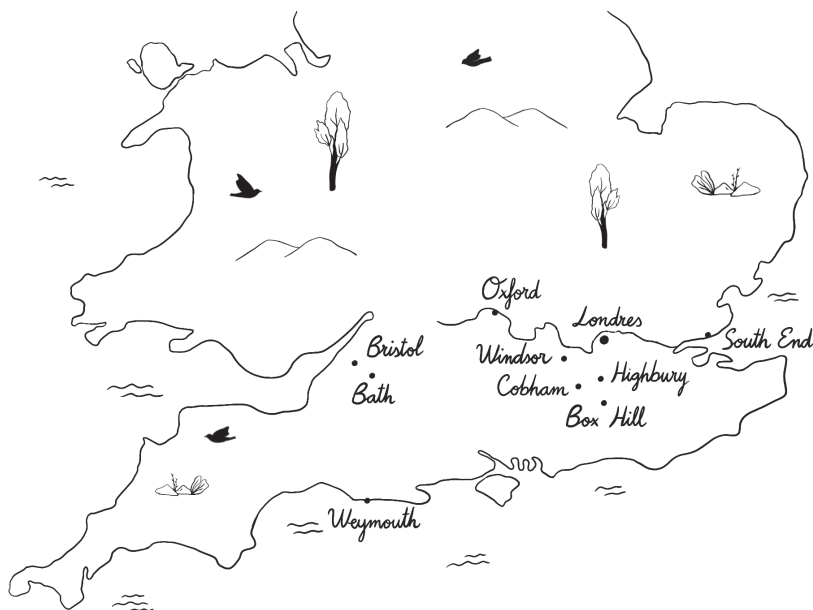 Oxford
Londres
South End
Bristol
Windsor
Highbury
Cobham
Bath
Box Hill
Weymouth